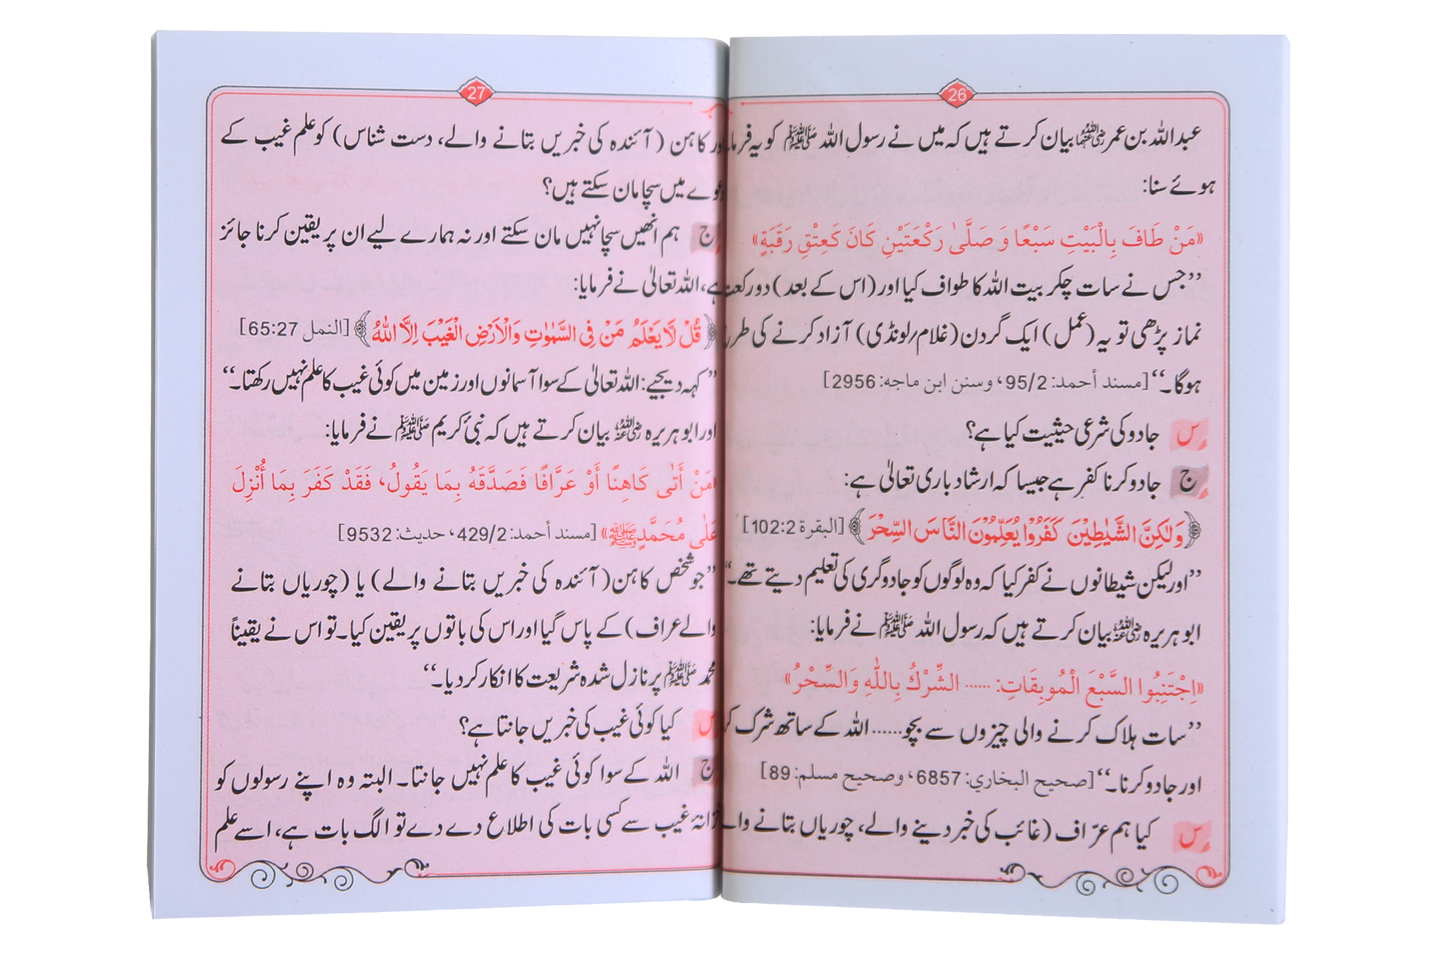 26
عبداللہ بن عمر رضی اللہ عنہما بیان کرتے ہیں کہ میں نے رسول اللہ ﷺ کو یہ
ہوئے سنا:
«مَنْ طَافَ بِالْبَيْتِ سَبْعًا وَ صَلَّىٰ رَكْعَتَيْنِ كَانَ كَعِتْقِ رَقَبَةٍ»
’’جس نے سات چکر بیت اللہ کا طواف کیا اور (اس کے بعد) دو
نماز پڑھی تو یہ (عمل) ایک گردن (غلام؍لونڈی) آزاد کرنے کی
ہوگا۔‘‘ [مسند أحمد: 95/2، وسنن ابن ماجه: 2956]
س جادو کی شرعی حیثیت کیا ہے؟
ج جادو کرنا کفر ہے جیسا کہ ارشاد باری تعالیٰ ہے:
﴿وَلٰكِنَّ الشَّيٰطِيْنَ كَفَرُوْا يُعَلِّمُوْنَ النَّاسَ السِّحْرَ﴾ [البقرة 102:2]
’’اور لیکن شیطانوں نے کفر کیا کہ وہ لوگوں کو جادوگری کی تعلیم دیتے تھے۔‘‘
ابو ہریرہ رضی اللہ عنہ بیان کرتے ہیں کہ رسول اللہ ﷺ نے فرمایا:
«اِجْتَنِبُوا السَّبْعَ الْمُوبِقَاتِ: ...... الشِّرْكُ بِاللّٰهِ وَالسِّحْرُ»
’’سات ہلاک کرنے والی چیزوں سے بچو...... اللہ کے ساتھ شرک
اور جادو کرنا۔‘‘ [صحيح البخاري: 6857، وصحيح مسلم: 89]
س کیا ہم عرّاف (غائب کی خبر دینے والے، چوریاں بتانے
27
کاہن (آئندہ کی خبریں بتانے والے، دست شناس) کو علم غیب کے
میں سچا مان سکتے ہیں؟
ج ہم انھیں سچا نہیں مان سکتے اور نہ ہمارے لیے ان پر یقین کرنا جائز
ہے، اللہ تعالیٰ نے فرمایا:
﴿قُلْ لَّا يَعْلَمُ مَنْ فِى السَّمٰوٰتِ وَالْاَرْضِ الْغَيْبَ اِلَّا اللّٰهُ﴾ [النمل 65:27]
’’کہہ دیجیے: اللہ تعالیٰ کے سوا آسمانوں اور زمین میں کوئی غیب کا علم نہیں رکھتا۔‘‘
اور ابو ہریرہ رضی اللہ عنہ بیان کرتے ہیں کہ نبیٔ کریم ﷺ نے فرمایا:
«مَنْ أَتٰى كَاهِنًا أَوْ عَرَّافًا فَصَدَّقَهُ بِمَا يَقُولُ، فَقَدْ كَفَرَ بِمَا أُنْزِلَ
عَلٰى مُحَمَّدٍ ﷺ» [مسند أحمد: 429/2، حديث: 9532]
’’جو شخص کاہن (آئندہ کی خبریں بتانے والے) یا (چوریاں بتانے
والے عراف) کے پاس گیا اور اس کی باتوں پر یقین کیا۔ تو اس نے یقیناً
محمد ﷺ پر نازل شدہ شریعت کا انکار کر دیا۔‘‘
س کیا کوئی غیب کی خبریں جانتا ہے؟
ج اللہ کے سوا کوئی غیب کا علم نہیں جانتا۔ البتہ وہ اپنے رسولوں کو
غیب سے کسی بات کی اطلاع دے دے تو الگ بات ہے، اسے علم